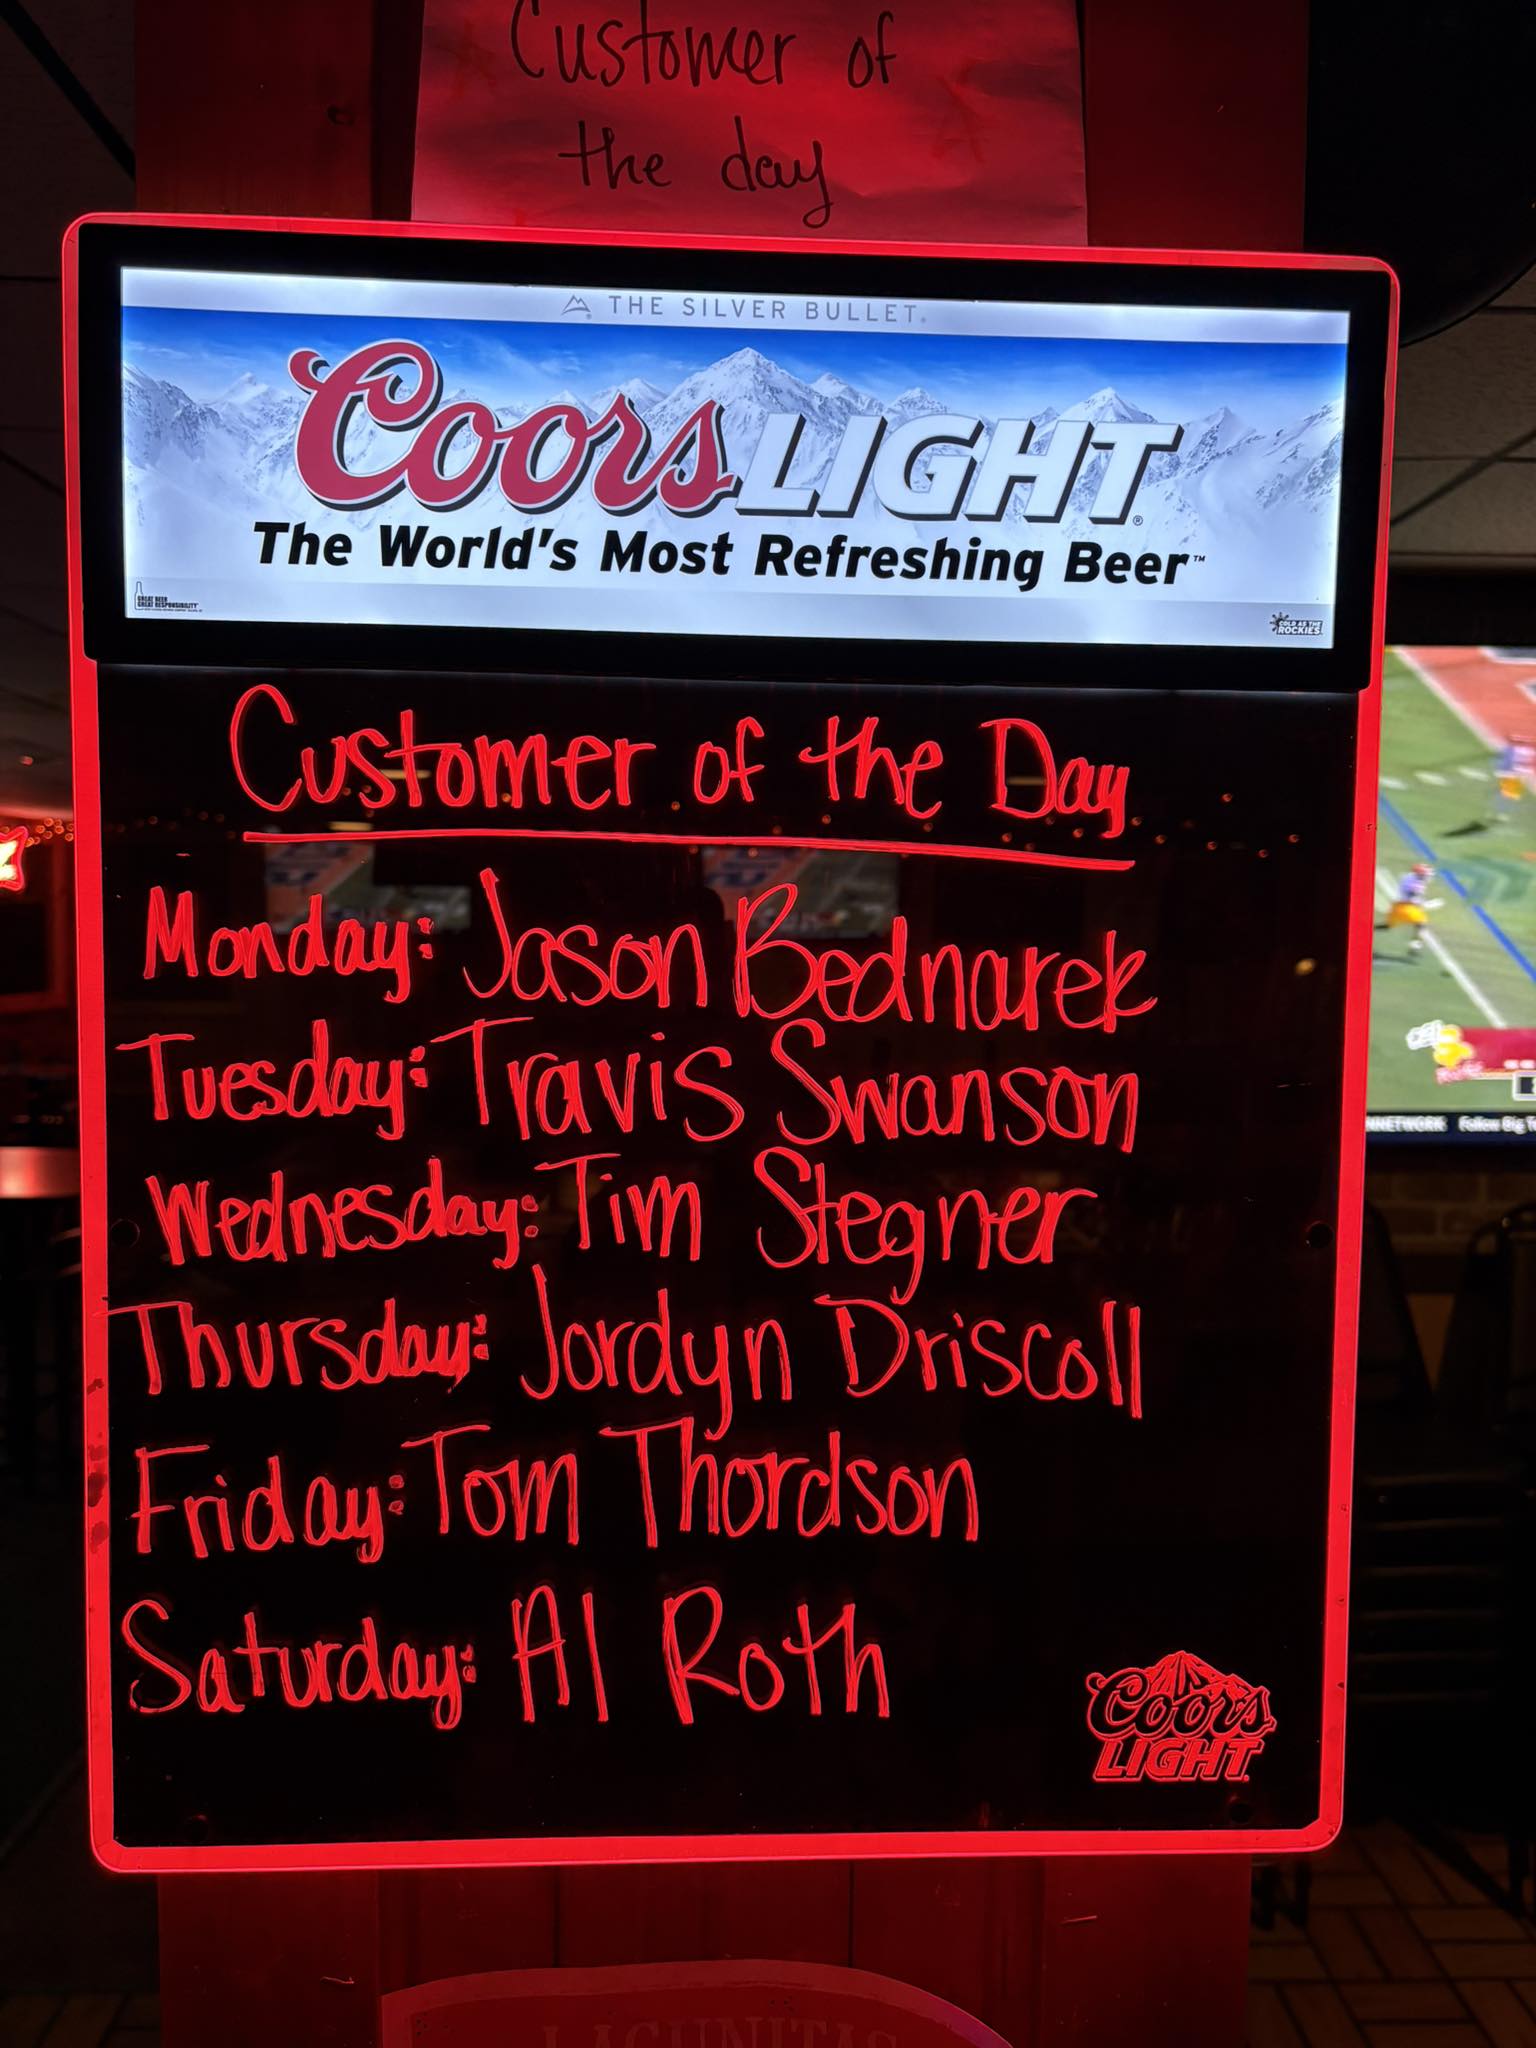 Customer of
the day
THE SILVER BULLET.
Coors LIGHT®
The World's Most Refreshing Beer™
GREAT BEER
GREAT RESPONSIBILITY®
COLD AS THE
ROCKIES
Customer of the Day
Monday: Jason Bednarek
Tuesday: Travis Swanson
Wednesday: Tim Stegner
Thursday: Jordyn Driscoll
Friday: Tom Thordson
Saturday: Al Roth
Coors
LIGHT
NETWORK Follow Big
LAGUNITAS